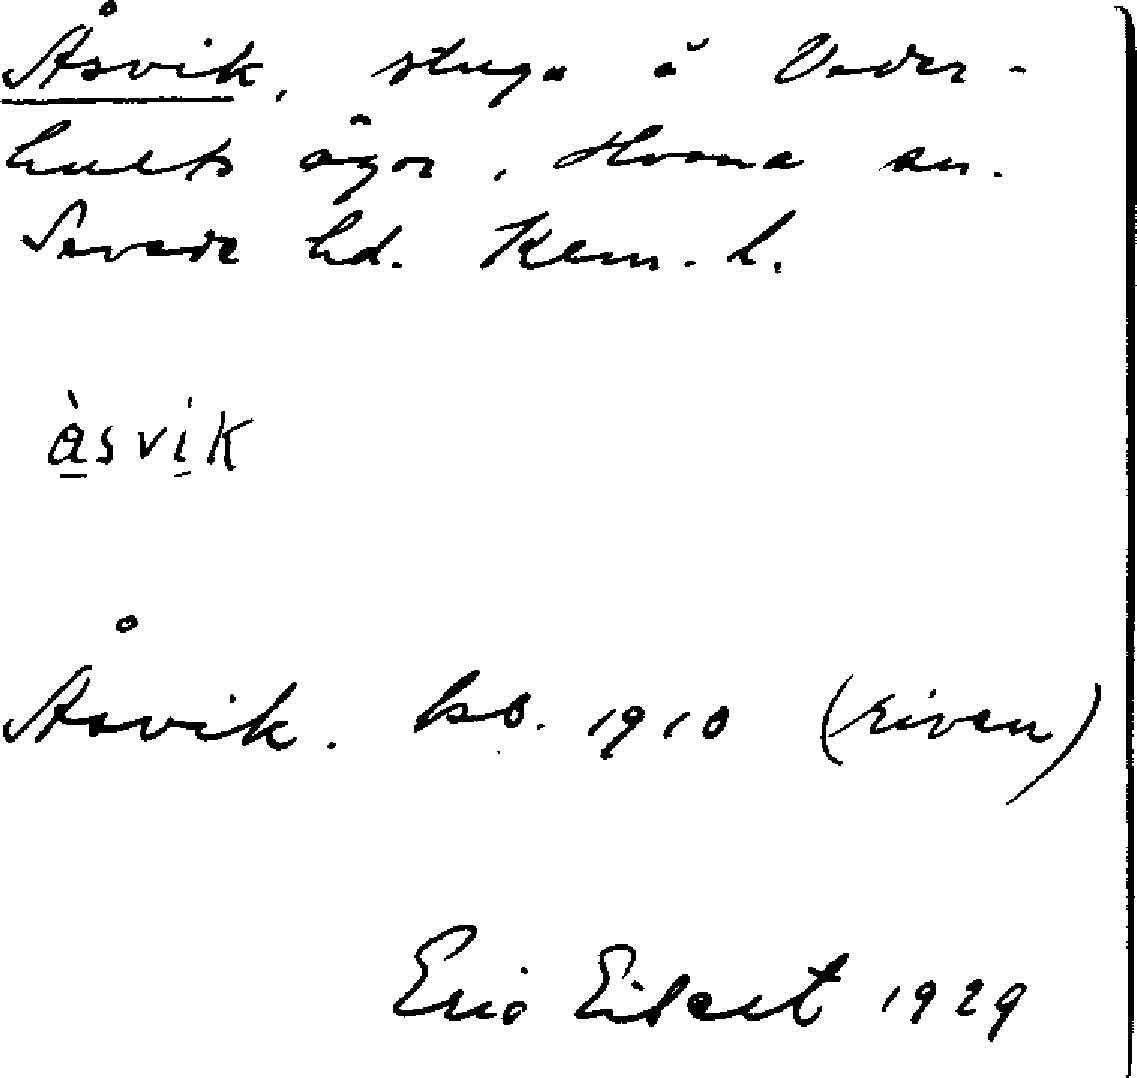 Åsvik, stuga å Veder-
hults ägor,
Sevede hd. Kalm. l.
àsvik
Åsvik. hsb. 1910 (riven)
Eric Elsert 1929